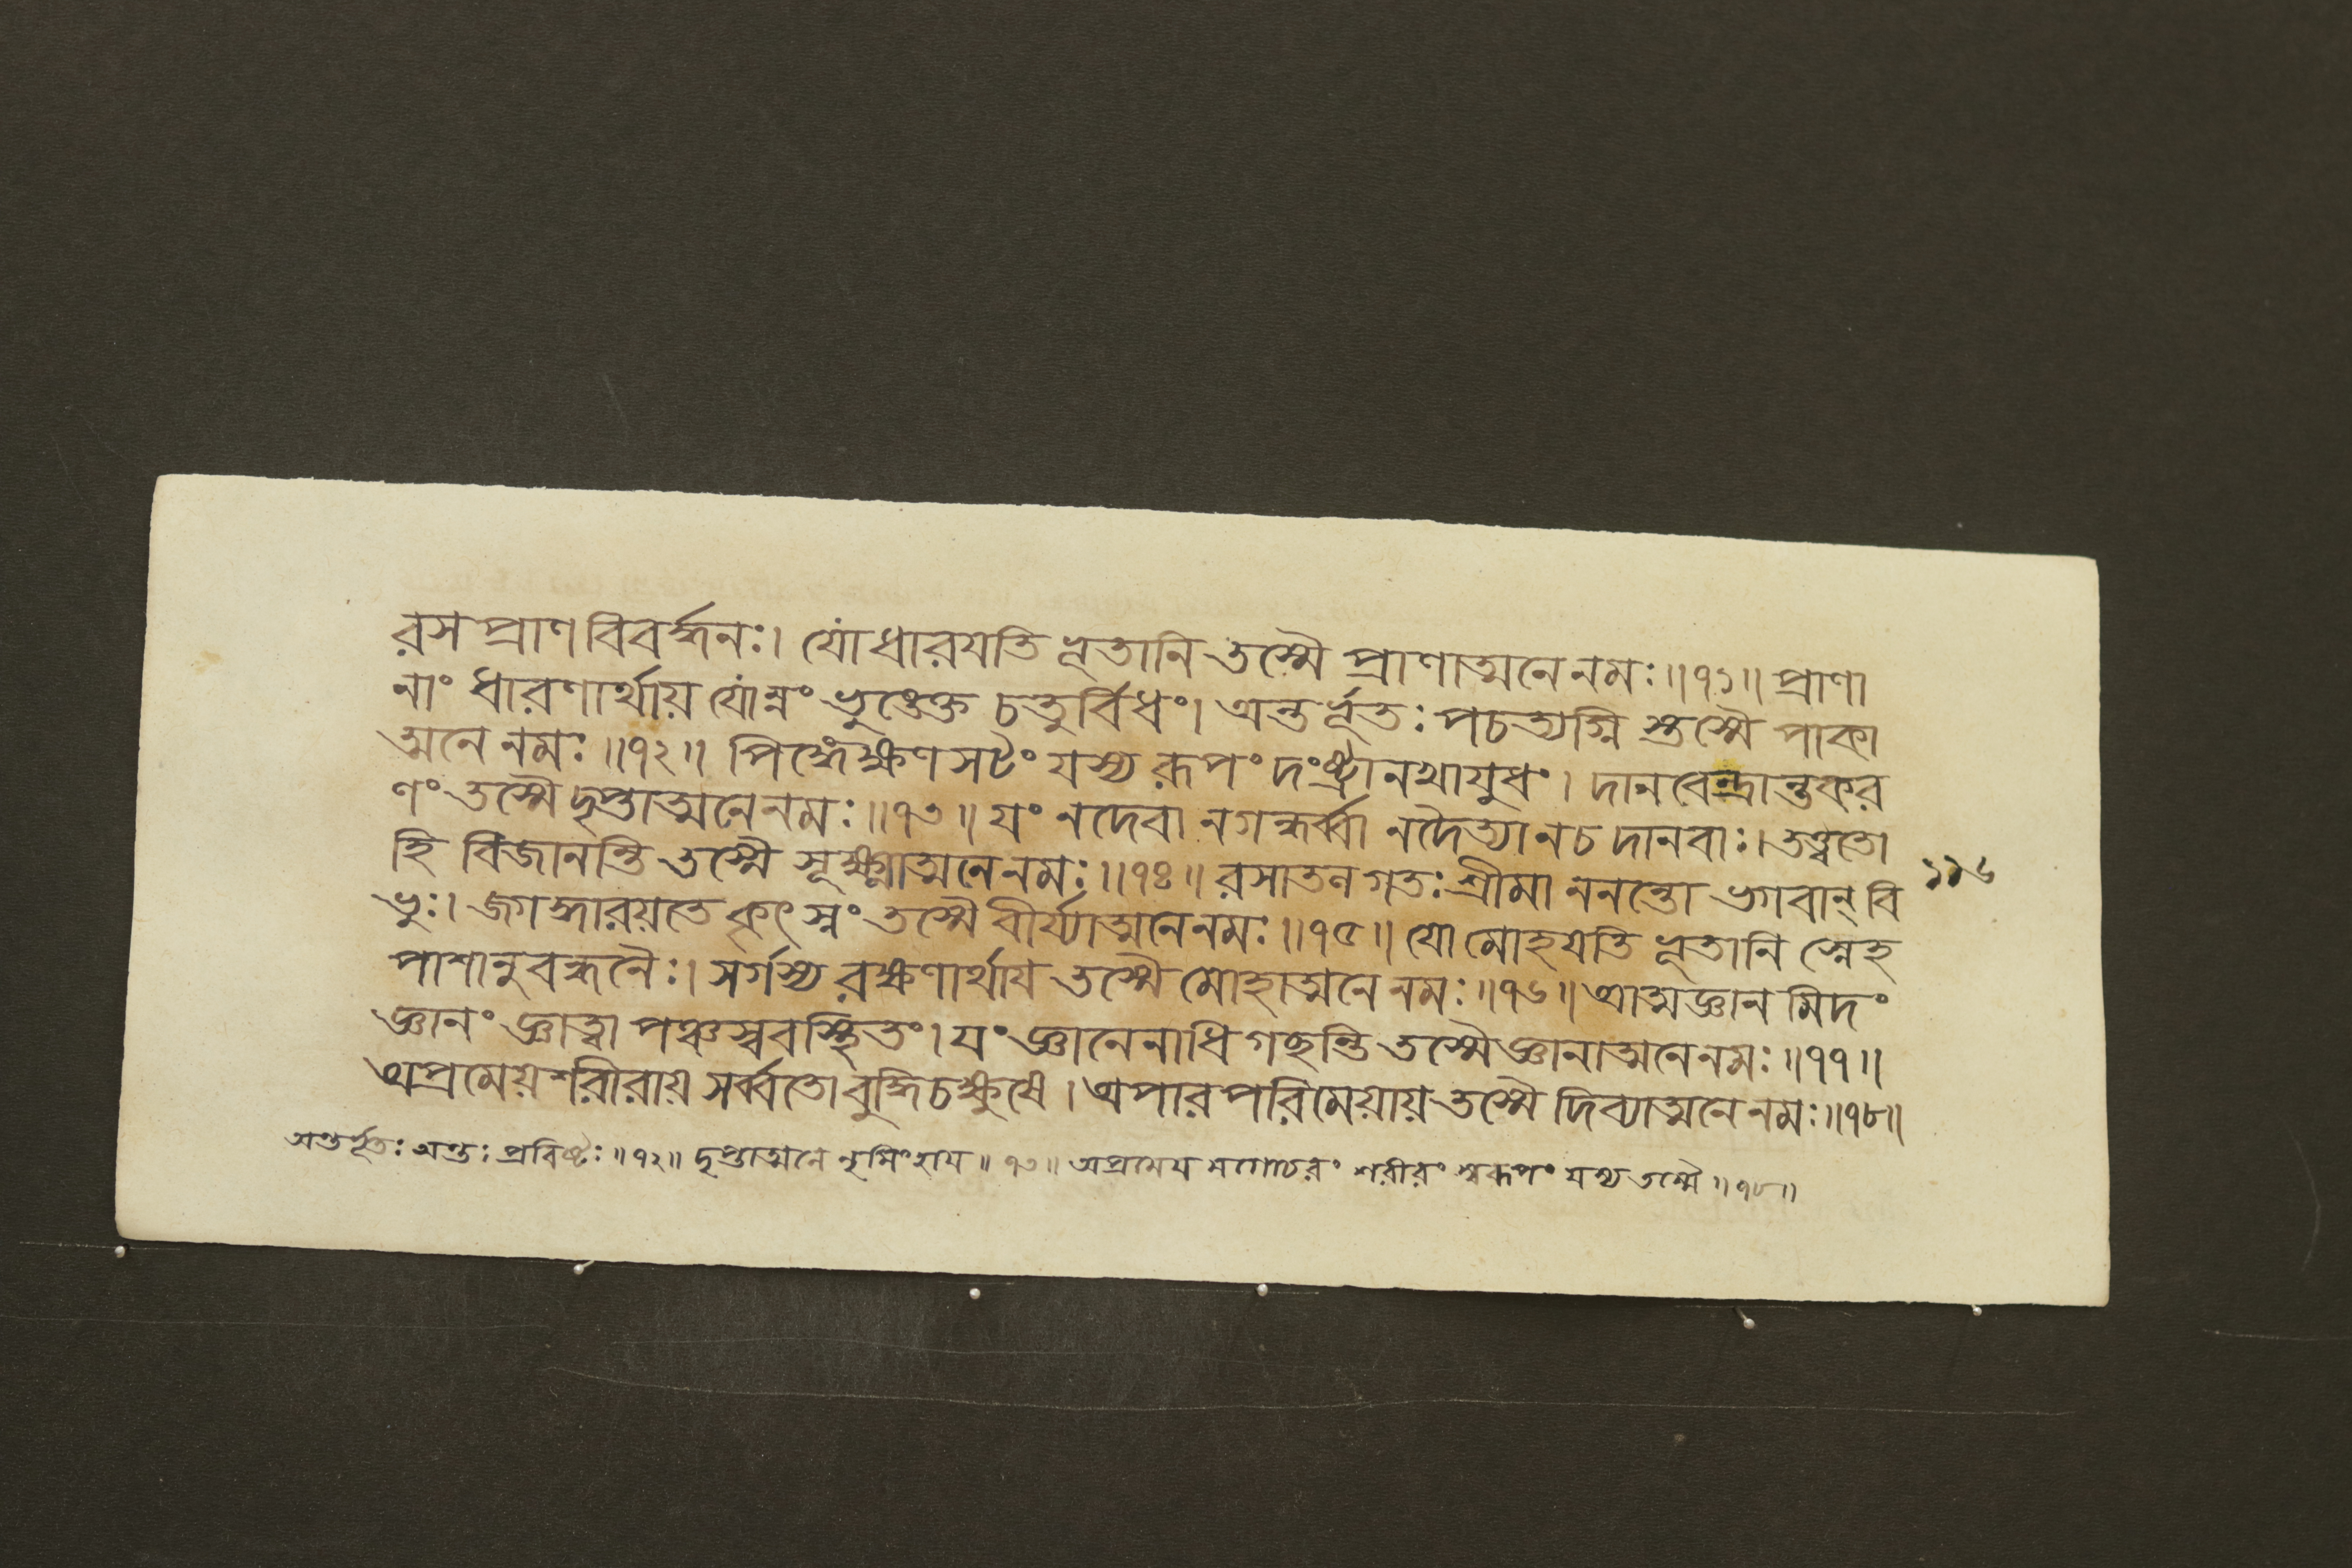 রসপ্রাণবিবর্দ্ধনঃ। যোধারযতি ভূতানি তস্মৈ প্রাণাত্মনে নমঃ॥৭১॥ প্রাণা
নাং ধারণার্থায় যোন্নং ভুঙ্ক্তে চতুর্বিধং। অন্তর্ভূতঃ পচত্যগ্নি স্তস্মৈ পাকা
ত্মনে নমঃ॥৭২॥ পিঙ্গেক্ষণসটং যস্য রূপং দংষ্ট্রানখাযুধং। দানবেন্দ্রান্তকর
ণং তস্মৈ দৃপ্তাত্মনে নমঃ॥৭৩॥ যং ন দেবা ন গন্ধর্ব্বা ন দৈত্যা ন চ দানবাঃ। তত্ত্বতো
হি বিজানন্তি তস্মৈ সূক্ষ্মাত্মনে নমঃ॥৭৪॥ রসাতলগতঃ শ্রীমা ননন্তো ভগবান্ বি
ভুঃ। জগদ্ধারয়তে কৃৎস্নং তস্মৈ বীর্য্যাত্মনে নমঃ॥৭৫॥ যো মোহযতি ভূতানি স্নেহ
পাশানুবন্ধনৈঃ। সর্গস্য রক্ষণার্থায তস্মৈ মোহাত্মনে নমঃ॥৭৬॥ আত্মজ্ঞান মিদং
জ্ঞানং জ্ঞাত্বা পঞ্চস্ববস্থিতং। যং জ্ঞানেনাধিগছন্তি তস্মৈ জ্ঞানাত্মনে নমঃ॥৭৭॥
অপ্রমেয়শরীরায় সর্ব্বতো বুদ্ধিচক্ষুষে। অপারপরিমেয়ায় তস্মৈ দিব্যাত্মনে নমঃ॥৭৮॥
অন্তর্ভূতঃ অন্তঃপ্রবিষ্টঃ॥৭২॥ দৃপ্তাত্মনে নৃসিংহায॥৭৩॥ অপ্রমেয মগোচরং শরীরং স্বরূপং যস্য তস্মৈ॥৭৮॥
১১৬